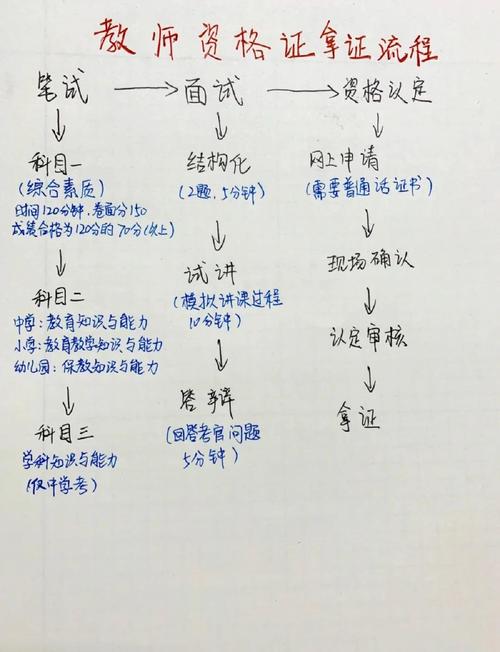 教师资格证拿证流程
笔试 → 面试 → 资格认定
↓
科目一
(综合素质)
时间120分钟,卷面分150
成绩合格为120分的70分(以上)
↓
科目二
中学:教育知识与能力
小学:教育教学知识与能力
幼儿园:保教知识与能力
↓
科目三
学科知识与能力
(仅中学考)
↓
结构化
(2题,5分钟)
↓
试讲
(模拟讲课过程
10分钟)
↓
答辩
(回答考官问题
5分钟)
↓
网上申请
(需要普通话证书)
↓
现场确认
↓
认定审核
↓
拿证